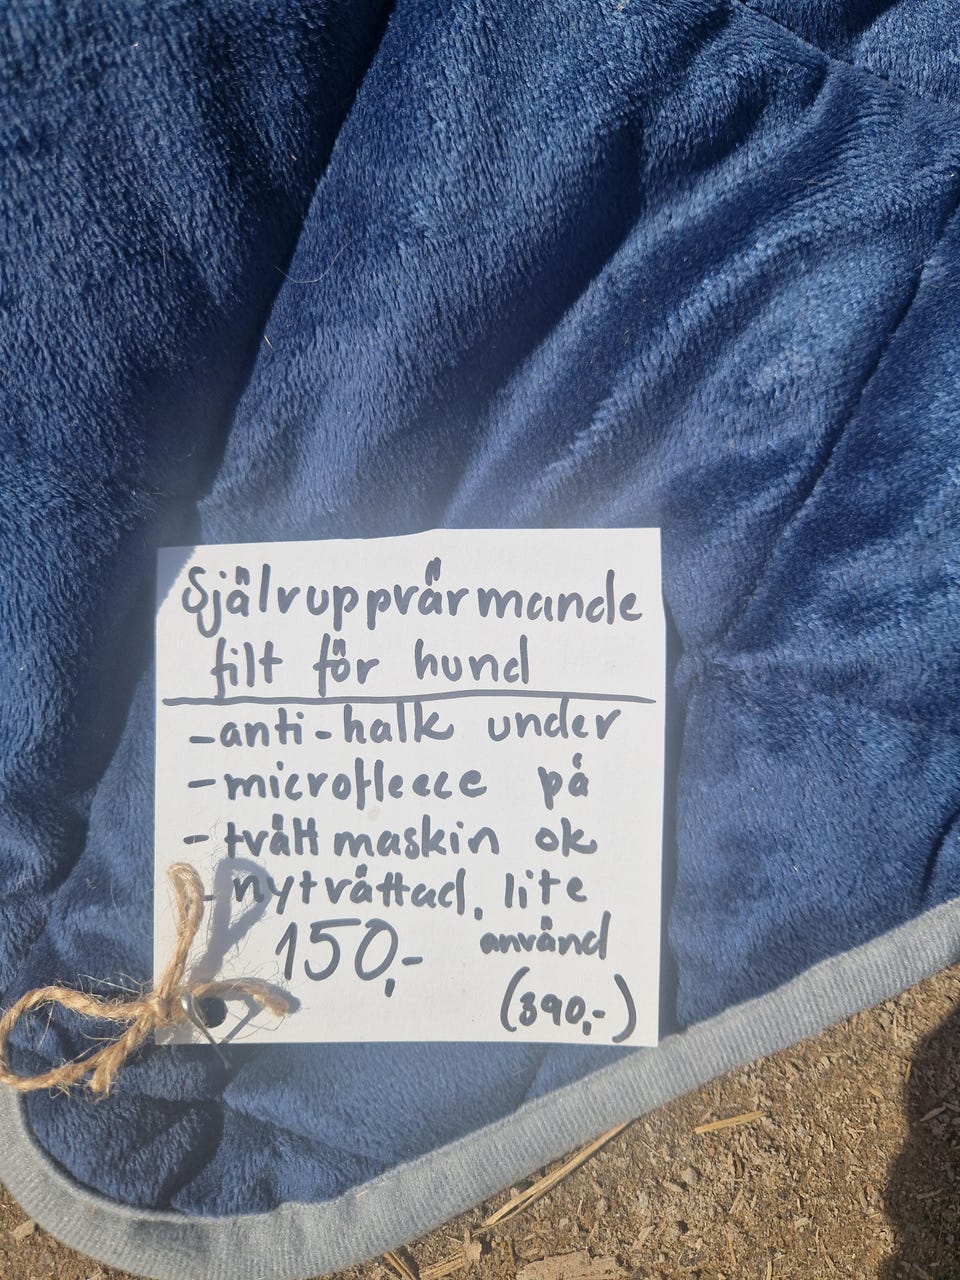 Självuppvärmande
filt för hund
- anti-halk under
- microfleece på
- tvätt maskin ok
- nytvättad, lite
använd
150,-
(390,-)